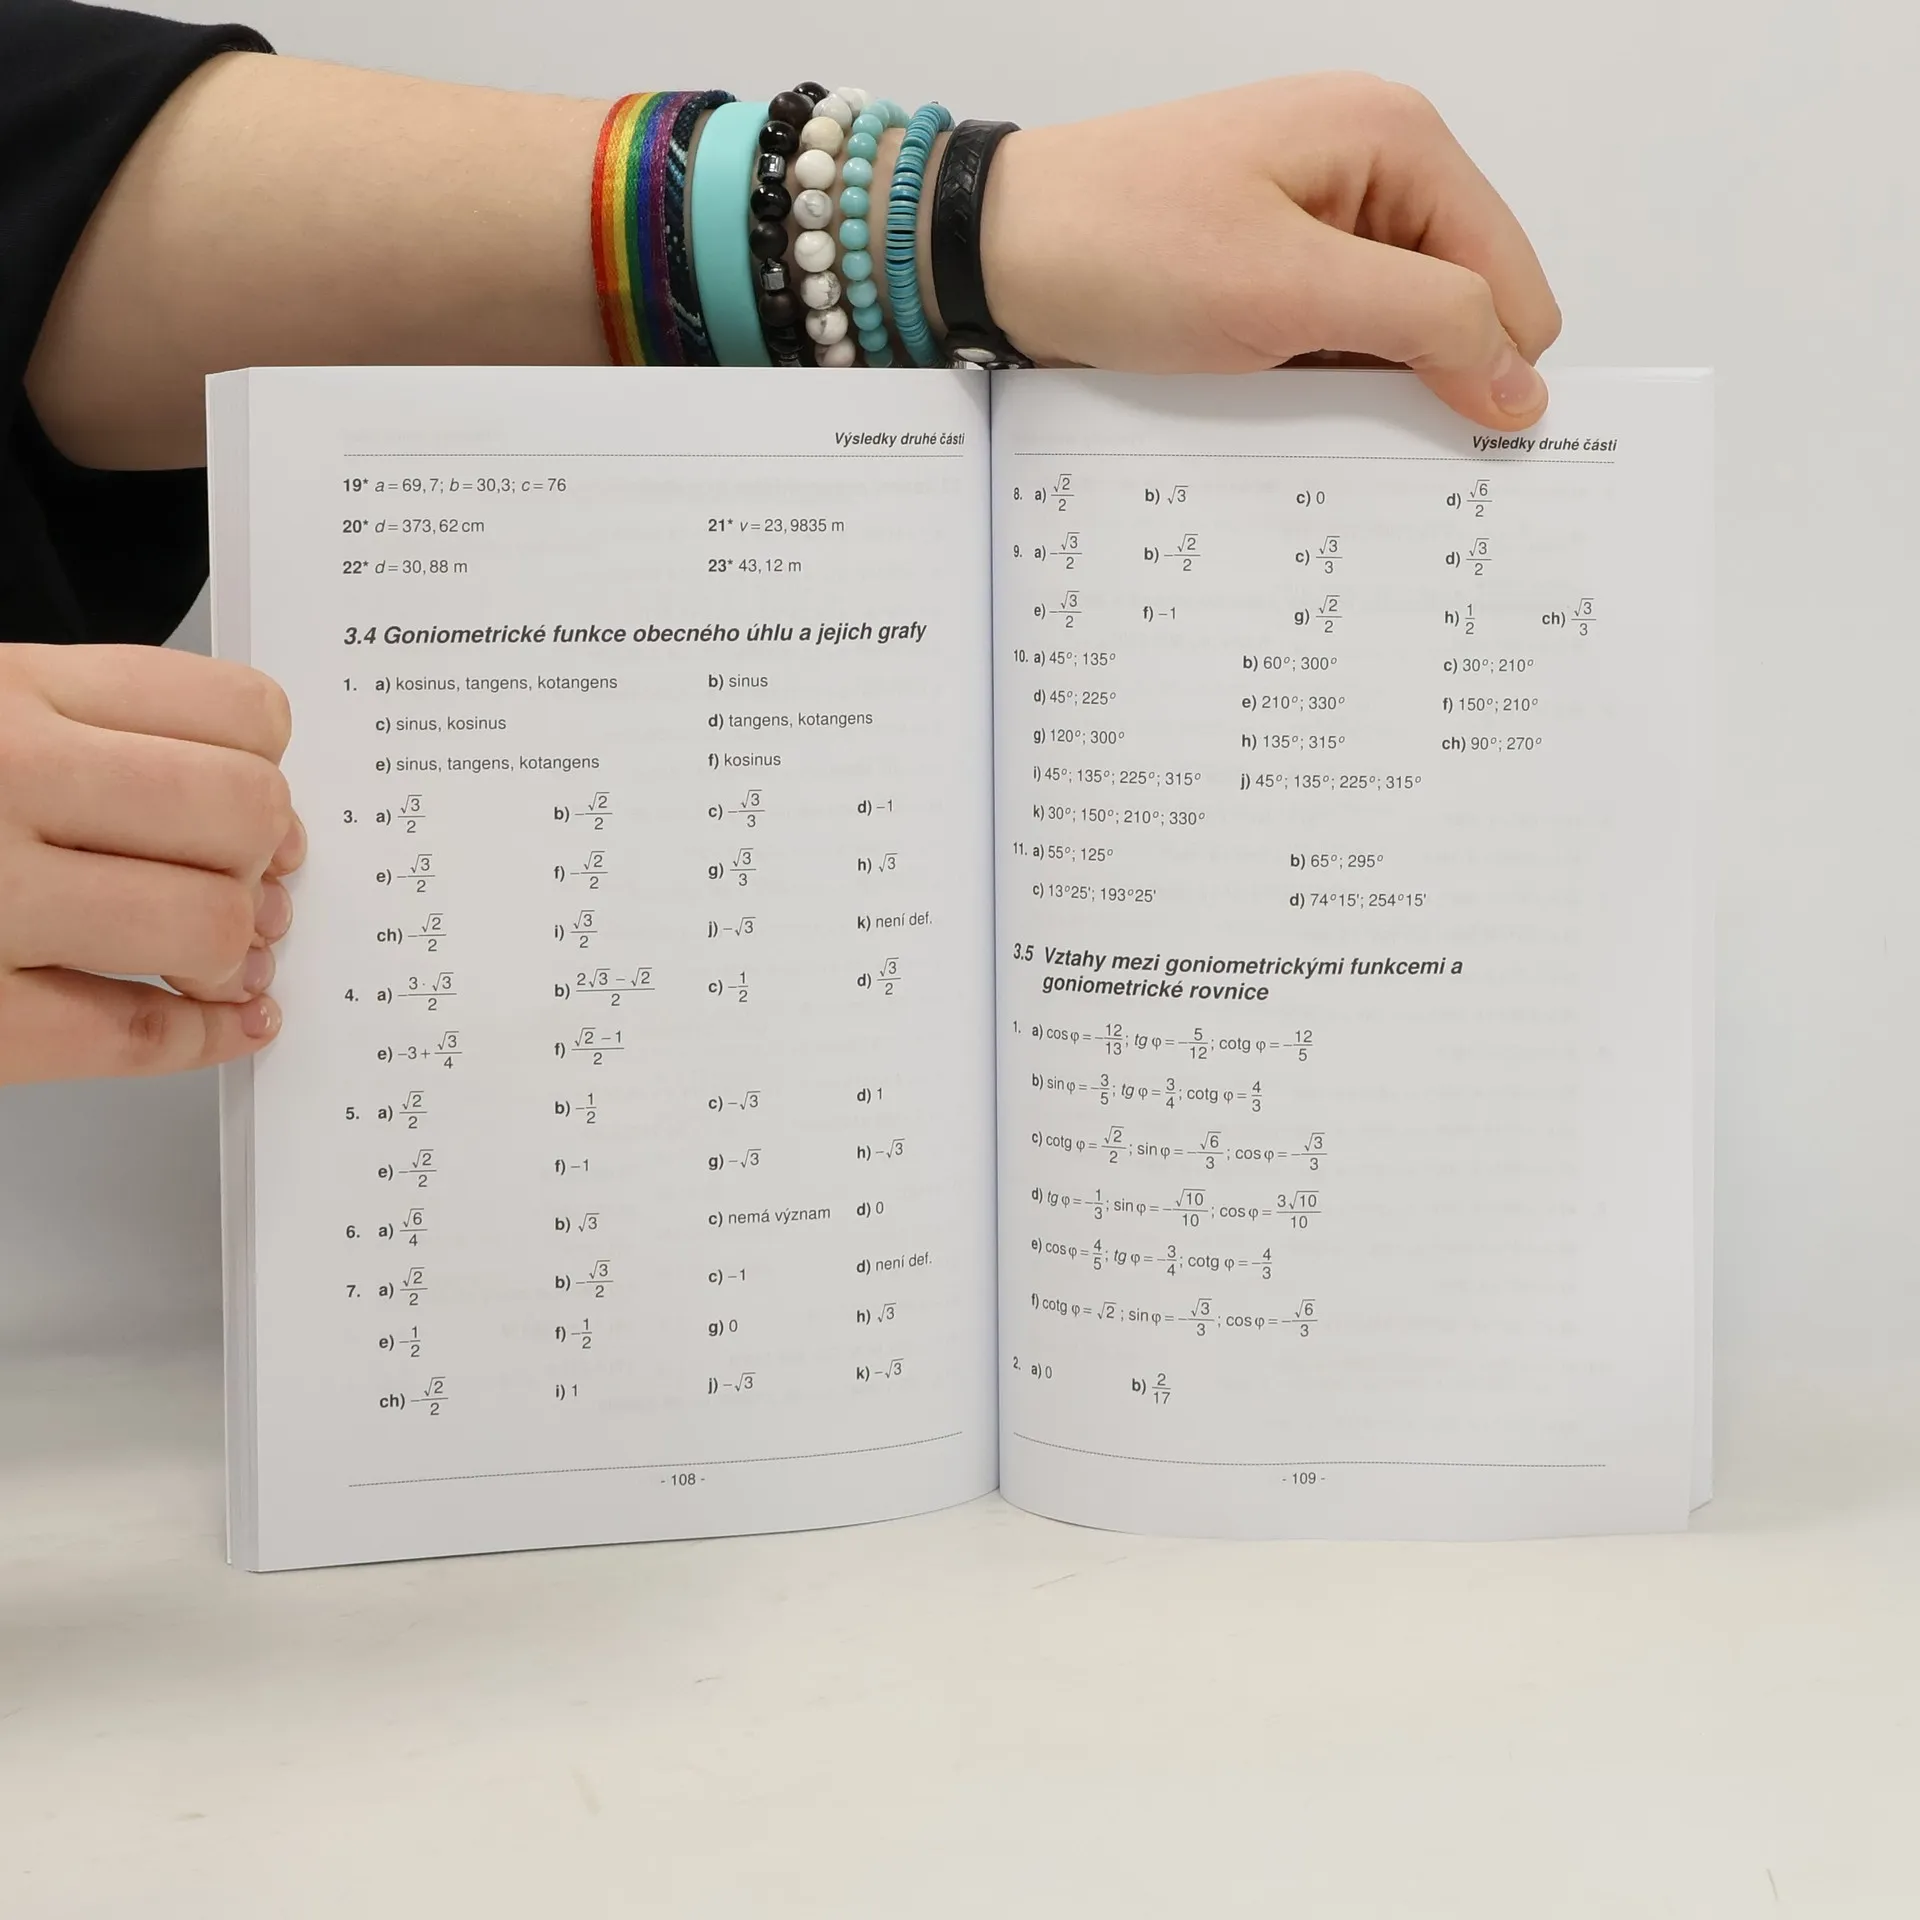 Výsledky druhé části
19* a = 69,7; b = 30,3; c = 76
20* d = 373,62 cm 21* v = 23,9835 m
22* d = 30,88 m 23* 43,12 m
3.4 Goniometrické funkce obecného úhlu a jejich grafy
1. a) kosinus, tangens, kotangens b) sinus
c) sinus, kosinus d) tangens, kotangens
e) sinus, tangens, kotangens f) kosinus
3. a) √3/2 b) −√2/2 c) −√3/3 d) −1
e) −√3/2 f) −√2/2 g) √3/3 h) √3
ch) −√2/2 i) √3/2 j) −√3 k) není def.
4. a) −3·√3/2 b) (2√3 − √2)/2 c) −1/2 d) √3/2
e) −3 + √3/4 f) (√2 − 1)/2
5. a) √2/2 b) −1/2 c) −√3 d) 1
e) −√2/2 f) −1 g) −√3 h) −√3
6. a) √6/4 b) √3 c) nemá význam d) 0
7. a) √2/2 b) −√3/2 c) −1 d) není def.
e) −1/2 f) −1/2 g) 0 h) √3
ch) −√2/2 i) 1 j) −√3 k) −√3
- 108 -
Výsledky druhé části
8. a) √2/2 b) √3 c) 0 d) √6/2
9. a) −√3/2 b) −√2/2 c) √3/3 d) √3/2
e) −√3/2 f) −1 g) √2/2 h) 1/2 ch) √3/3
10. a) 45°; 135° b) 60°; 300° c) 30°; 210°
d) 45°; 225° e) 210°; 330° f) 150°; 210°
g) 120°; 300° h) 135°; 315° ch) 90°; 270°
i) 45°; 135°; 225°; 315° j) 45°; 135°; 225°; 315°
k) 30°; 150°; 210°; 330°
11. a) 55°; 125° b) 65°; 295°
c) 13°25'; 193°25' d) 74°15'; 254°15'
3.5 Vztahy mezi goniometrickými funkcemi a
goniometrické rovnice
1. a) cos φ = −12/13; tg φ = −5/12; cotg φ = −12/5
b) sin φ = −3/5; tg φ = 3/4; cotg φ = 4/3
c) cotg φ = √2/2; sin φ = −√6/3; cos φ = −√3/3
d) tg φ = −1/3; sin φ = −√10/10; cos φ = 3√10/10
e) cos φ = 4/5; tg φ = −3/4; cotg φ = −4/3
f) cotg φ = √2; sin φ = −√3/3; cos φ = −√6/3
2. a) 0 b) 2/17
- 109 -